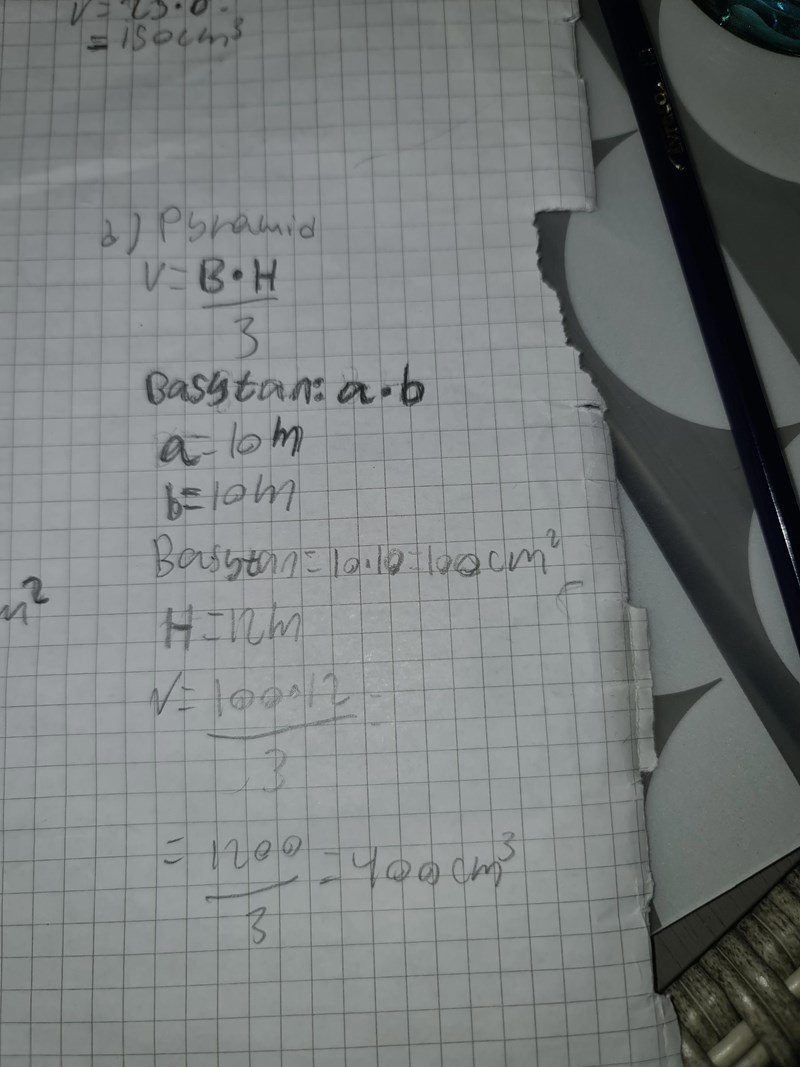 = 150cm³
b) Pyramid
V= B·H
3
Basytan: a·b
a=10m
b=10m
Basytan=10·10=100cm²
m²
H=12m
V= 100·12 =
3
= 1200 =400cm³
3